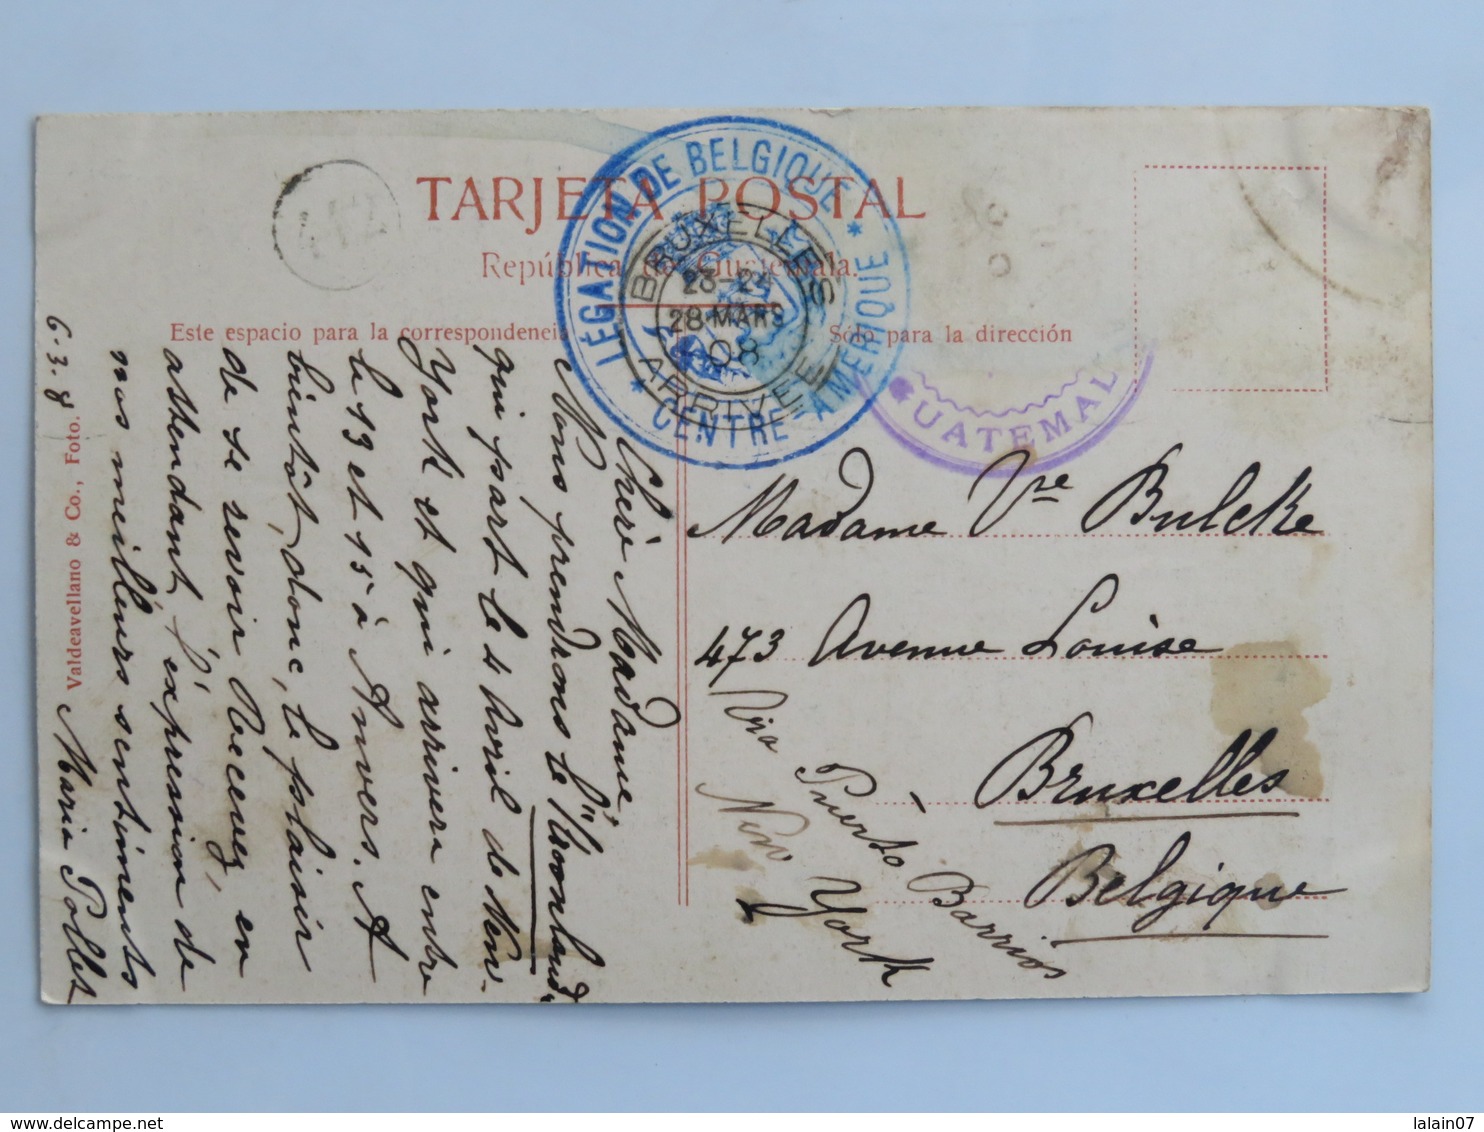 TARJETA POSTAL
República de Guatemala.
Este espacio para la correspondencia
Sólo para la dirección
LÉGATION DE BELGIQUE
* CENTRE-AMÉRIQUE *
BRUXELLES
23-24
28 MARS
08
ARRIVEE
GUATEMAL
Chère Madame,
Nous prendrons le "Kroonland"
qui part le 4 Avril de New-
York et qui arrivera entre
le 13 et 15 à Anvers. A
bientôt, donc, le plaisir
de se revoir. Recevez, en
attendant, l'expression de
nos meilleurs sentiments
Maria Pollet
6.3.8
Valdeavellano & Co., Foto.
Madame Vve Bulcke
473 Avenue Louise
Bruxelles
Belgique
Via Puerto Barrios
New York
lalain07